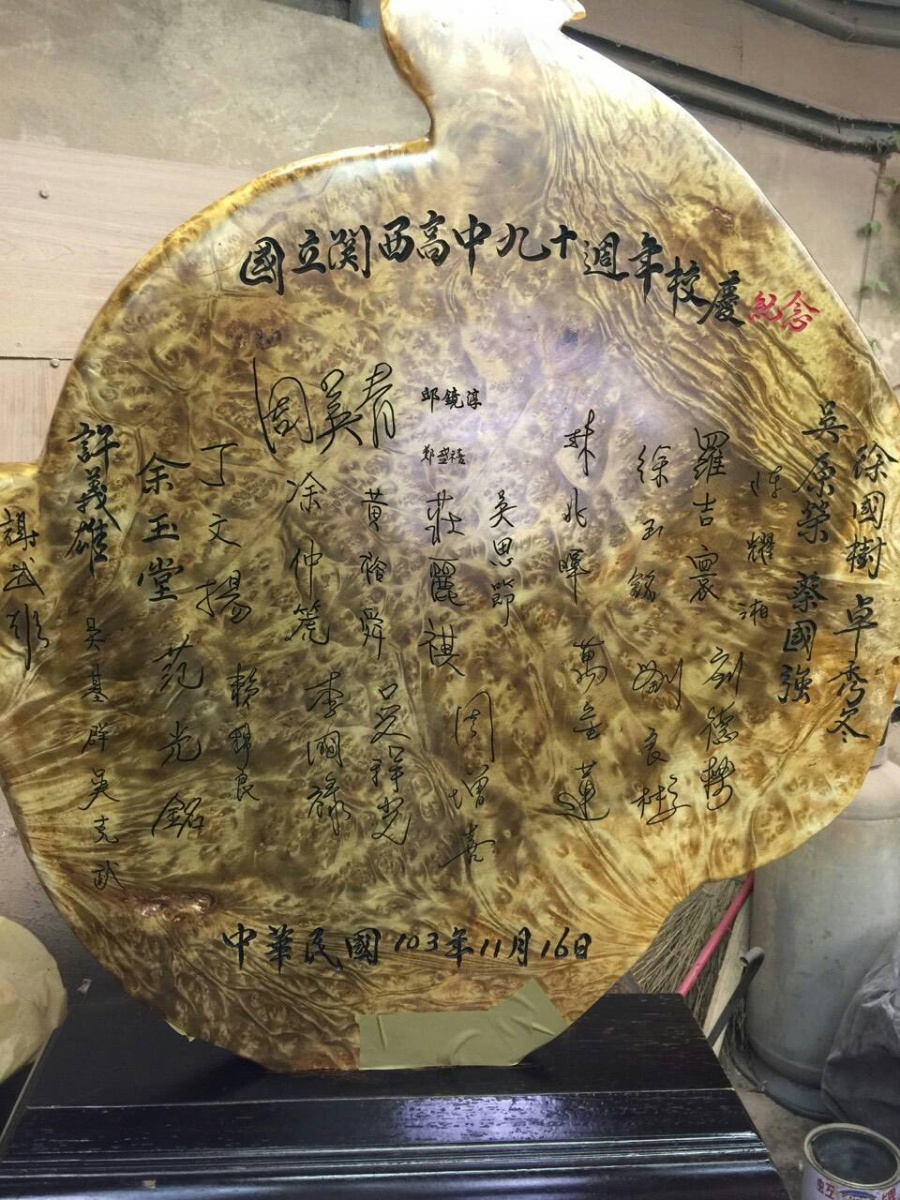 國立関西高中九十週年校慶紀念
徐國樹 卓秀冬
吳原榮 蔡國強
耀湘
羅吉 劉德勢
徐玉 劉良
兆暉 萬 蓮
吳思節
邱鏡淳
莊麗祺 周增喜
黃裕舜 呂祥光
周英
涂仲箎 李國祿
丁文揚 賴科良
余玉堂 范光銘
許義雄 吳基群 吳克武
謝武
中華民國103年11月16日